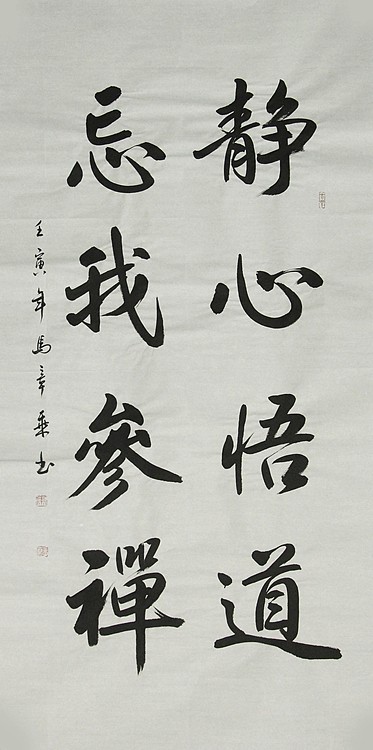 静心悟道
忘我參禪
壬寅年馬章乘书